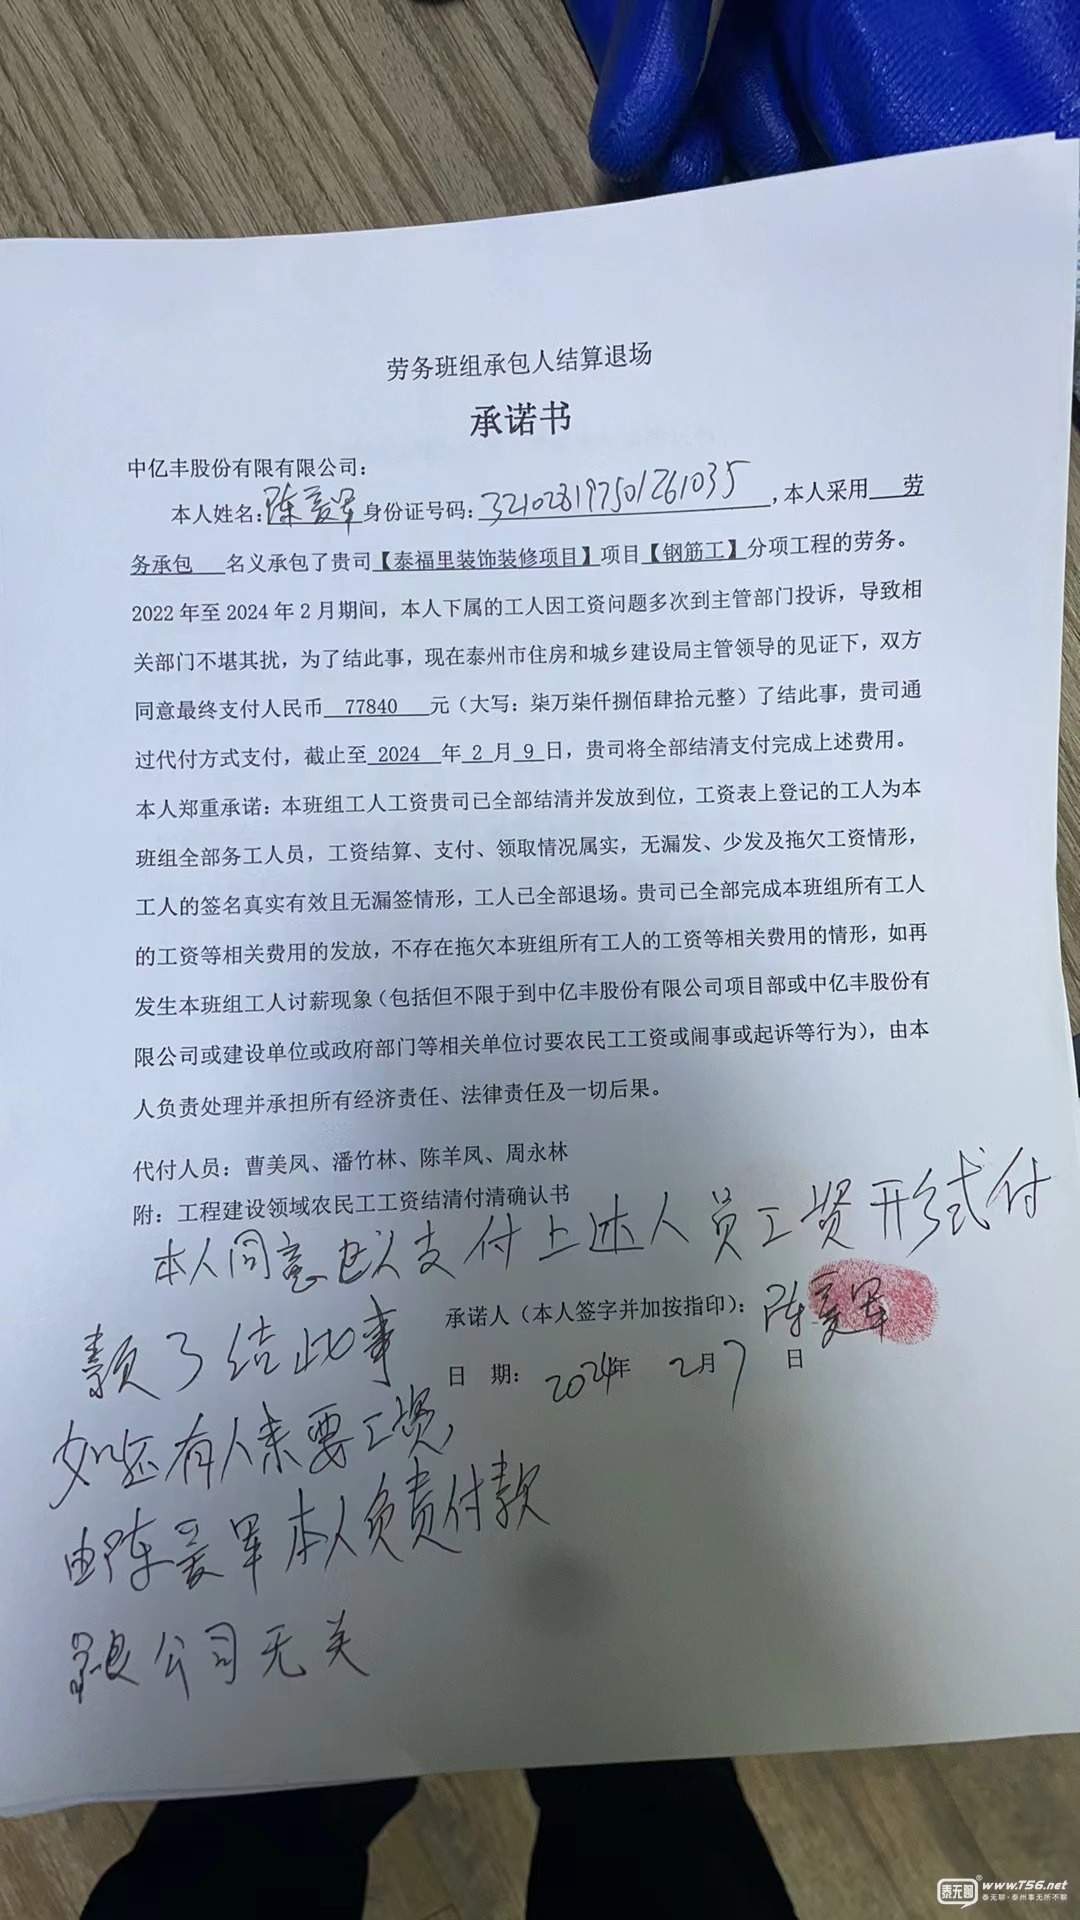 劳务班组承包人结算退场
承诺书
中亿丰股份有限有限公司：
本人姓名：陈爱军身份证号码：321028197501261035，本人采用 劳
务承包 名义承包了贵司【泰福里装饰装修项目】项目【钢筋工】分项工程的劳务。
2022年至2024年2月期间，本人下属的工人因工资问题多次到主管部门投诉，导致相
关部门不堪其扰，为了结此事，现在泰州市住房和城乡建设局主管领导的见证下，双方
同意最终支付人民币 77840 元（大写：柒万柒仟捌佰肆拾元整）了结此事，贵司通
过代付方式支付，截止至 2024 年 2 月 9 日，贵司将全部结清支付完成上述费用。
本人郑重承诺：本班组工人工资贵司已全部结清并发放到位，工资表上登记的工人为本
班组全部务工人员，工资结算、支付、领取情况属实，无漏发、少发及拖欠工资情形，
工人的签名真实有效且无漏签情形，工人已全部退场。贵司已全部完成本班组所有工人
的工资等相关费用的发放，不存在拖欠本班组所有工人的工资等相关费用的情形，如再
发生本班组工人讨薪现象（包括但不限于到中亿丰股份有限公司项目部或中亿丰股份有
限公司或建设单位或政府部门等相关单位讨要农民工工资或闹事或起诉等行为），由本
人负责处理并承担所有经济责任、法律责任及一切后果。
代付人员：曹美凤、潘竹林、陈羊凤、周永林
附：工程建设领域农民工工资结清付清确认书
本人同意以支付上述人员工资形式付
款了结此事
承诺人（本人签字并加按指印）：陈爱军
日 期：2024年 2月7 日
如还有人来要工资，
由陈爱军本人负责付款
跟公司无关
泰无聊
www.T56.net
泰无聊·泰州事无所不聊